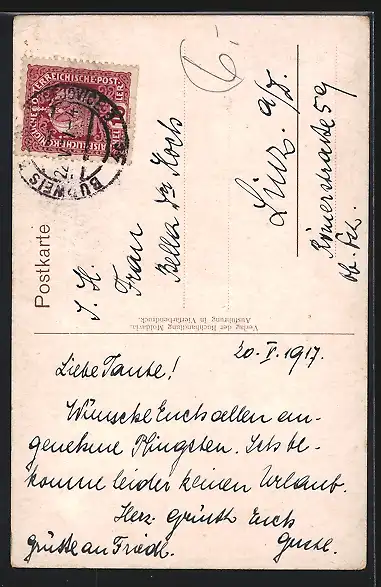 Postkarte
KAISERLICHE KÖNIGLICHE ÖSTERREICHISCHE POST
BUDWEIS
Frau
Bella
Linz a/D.
Römerstraße 59
Ob. Öst.
Verlag der Buchhandlung Moldavia.
Ausführung in Vierfarbendruck.
20. V. 1917.
Liebe Tante!
Wünsche Euch allen an-
genehme Pfingsten. Ich be-
komme leider keinen Urlaub.
Herz. grüßt Euch
Grüsse an Friedl. Gustl.